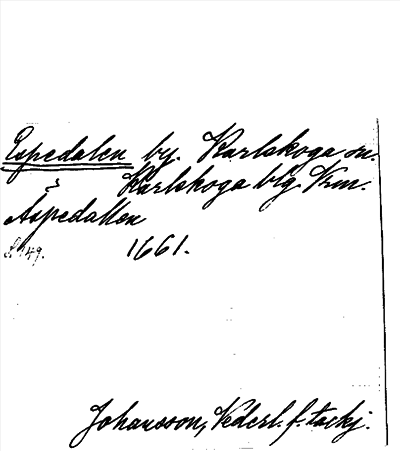 Espedalen by. Karlskoga sn.
Karlskoga blg. Vrm.
Aspedallen
49. 1661.
Johansson, Vederl. f. tackj.